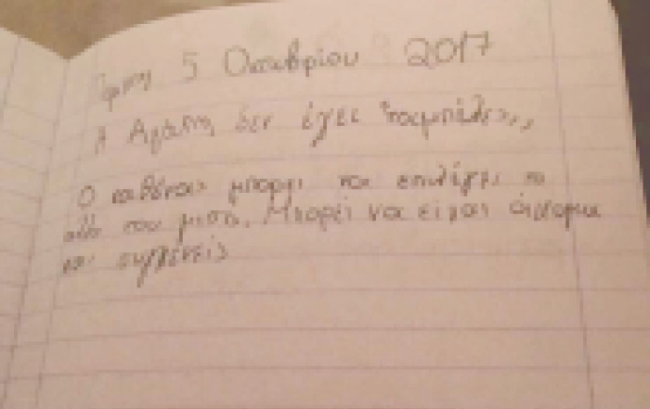 5 Οκτωβρίου 2017
Η Αγάπη δεν έχει ταμπέλες,,
Ο καθένας μπορεί να επιλέγει το
άλλο του μισό. Μπορεί να είναι
και συγγενείς